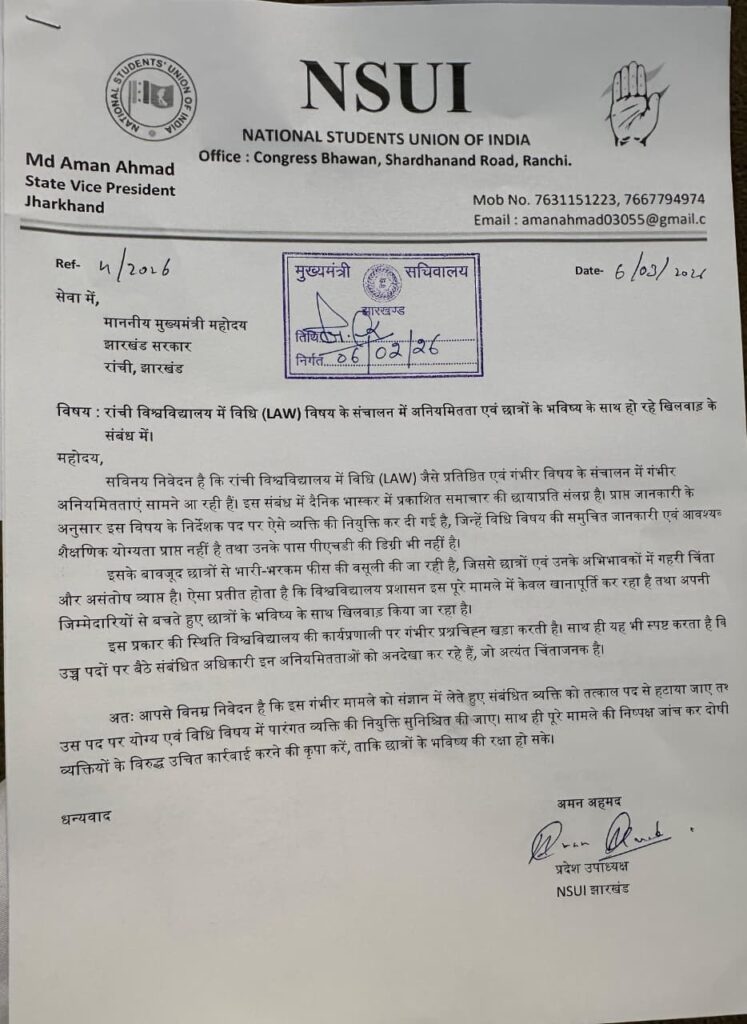 NATIONAL STUDENTS' UNION OF INDIA
NSUI
NATIONAL STUDENTS UNION OF INDIA
Office : Congress Bhawan, Shardhanand Road, Ranchi.
Md Aman Ahmad
State Vice President
Jharkhand
Mob No. 7631151223, 7667794974
Email : amanahmad03055@gmail.c
Ref- 4/2026
मुख्यमंत्री सचिवालय
झारखण्ड
तिथि
निर्गत 06/02/26
Date- 6/03/2026
सेवा में,
माननीय मुख्यमंत्री महोदय
झारखंड सरकार
रांची, झारखंड
विषय : रांची विश्वविद्यालय में विधि (LAW) विषय के संचालन में अनियमितता एवं छात्रों के भविष्य के साथ हो रहे खिलवाड़ के
संबंध में।
महोदय,
सविनय निवेदन है कि रांची विश्वविद्यालय में विधि (LAW) जैसे प्रतिष्ठित एवं गंभीर विषय के संचालन में गंभीर
अनियमितताएं सामने आ रही हैं। इस संबंध में दैनिक भास्कर में प्रकाशित समाचार की छायाप्रति संलग्न है। प्राप्त जानकारी के
अनुसार इस विषय के निर्देशक पद पर ऐसे व्यक्ति की नियुक्ति कर दी गई है, जिन्हें विधि विषय की समुचित जानकारी एवं आवश्यक
शैक्षणिक योग्यता प्राप्त नहीं है तथा उनके पास पीएचडी की डिग्री भी नहीं है।
इसके बावजूद छात्रों से भारी-भरकम फीस की वसूली की जा रही है, जिससे छात्रों एवं उनके अभिभावकों में गहरी चिंता
और असंतोष व्याप्त है। ऐसा प्रतीत होता है कि विश्वविद्यालय प्रशासन इस पूरे मामले में केवल खानापूर्ति कर रहा है तथा अपनी
जिम्मेदारियों से बचते हुए छात्रों के भविष्य के साथ खिलवाड़ किया जा रहा है।
इस प्रकार की स्थिति विश्वविद्यालय की कार्यप्रणाली पर गंभीर प्रश्नचिह्न खड़ा करती है। साथ ही यह भी स्पष्ट करता है वि
उच्च पदों पर बैठे संबंधित अधिकारी इन अनियमितताओं को अनदेखा कर रहे हैं, जो अत्यंत चिंताजनक है।
अतः आपसे विनम्र निवेदन है कि इस गंभीर मामले को संज्ञान में लेते हुए संबंधित व्यक्ति को तत्काल पद से हटाया जाए तथ
उस पद पर योग्य एवं विधि विषय में पारंगत व्यक्ति की नियुक्ति सुनिश्चित की जाए। साथ ही पूरे मामले की निष्पक्ष जांच कर दोषी
व्यक्तियों के विरुद्ध उचित कार्रवाई करने की कृपा करें, ताकि छात्रों के भविष्य की रक्षा हो सके।
धन्यवाद
अमन अहमद
प्रदेश उपाध्यक्ष
NSUI झारखंड